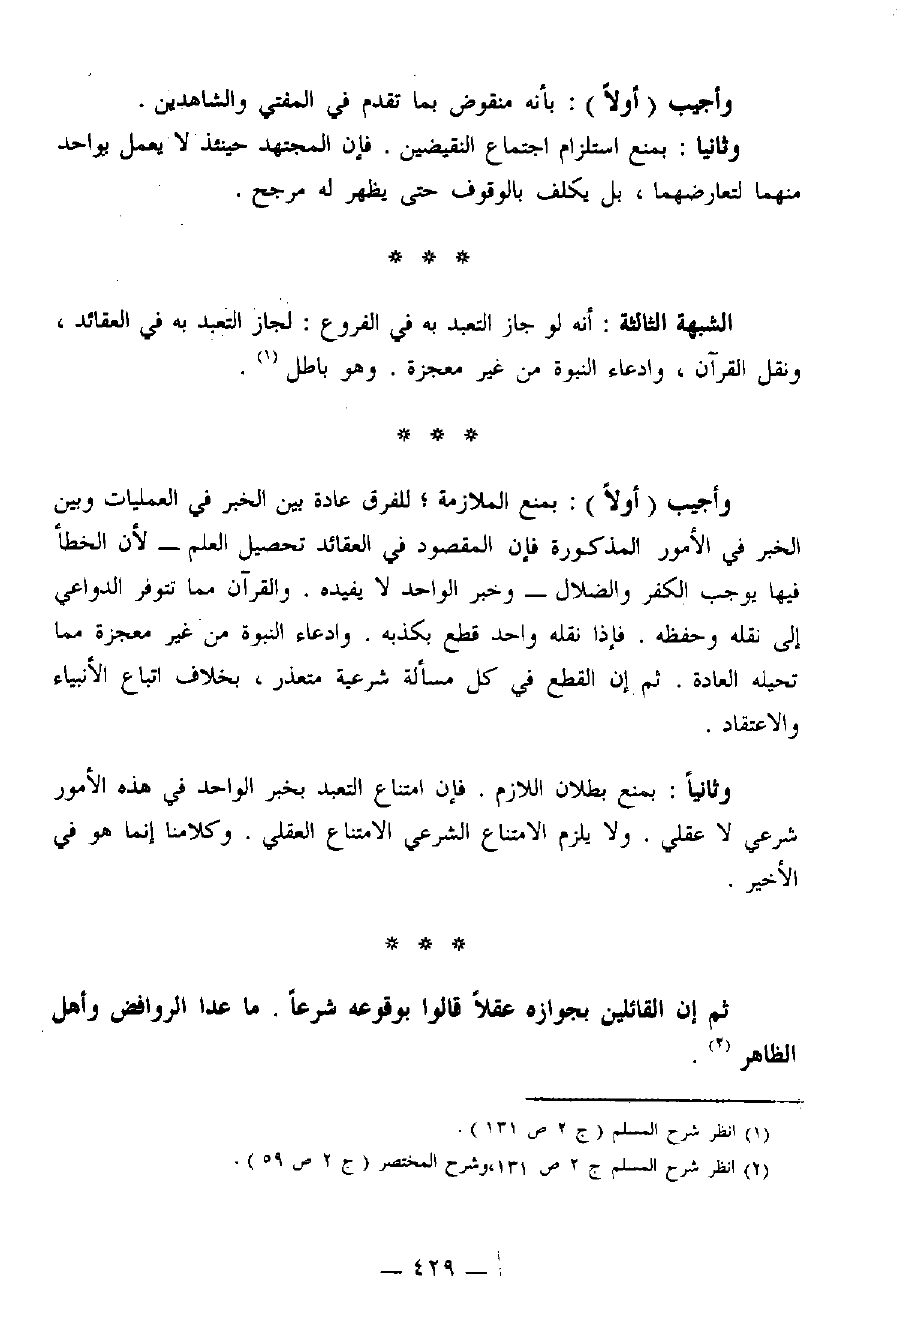 وأجيب ( أولاً ) : بأنه منقوض بما تقدم في المفتي والشاهدين .
وثانيا : بمنع استلزام اجتماع النقيضين . فإن المجتهد حينئذ لا يعمل بواحد
منهما لتعارضهما ، بل يكلف بالوقوف حتى يظهر له مرجح .
* * *
الشبهة الثالثة : أنه لو جاز التعبد به في الفروع : لجاز التعبد به في العقائد ،
ونقل القرآن ، وادعاء النبوة من غير معجزة . وهو باطل (١) .
* * *
وأجيب ( أولاً ) : بمنع الملازمة ؛ للفرق عادة بين الخبر في العمليات وبين
الخبر في الأمور المذكورة فإن المقصود في العقائد تحصيل العلم — لأن الخطأ
فيها يوجب الكفر والضلال — وخبر الواحد لا يفيده . والقرآن مما تتوفر الدواعي
إلى نقله وحفظه . فإذا نقله واحد قطع بكذبه . وادعاء النبوة من غير معجزة مما
تحيله العادة . ثم إن القطع في كل مسألة شرعية متعذر ، بخلاف اتباع الأنبياء
والاعتقاد .
وثانياً : بمنع بطلان اللازم . فإن امتناع التعبد بخبر الواحد في هذه الأمور
شرعي لا عقلي . ولا يلزم الامتناع الشرعي الامتناع العقلي . وكلامنا إنما هو في
الأخير .
* * *
ثم إن القائلين بجوازه عقلاً قالوا بوقوعه شرعاً . ما عدا الروافض وأهل
الظاهر (٢) .
(١) انظر شرح المسلم ( ج ٢ ص ١٣١ ) .
(٢) انظر شرح المسلم ج ٢ ص ١٣١،وشرح المختصر ( ج ٢ ص ٥٩ ) .
— ٤٢٩ —